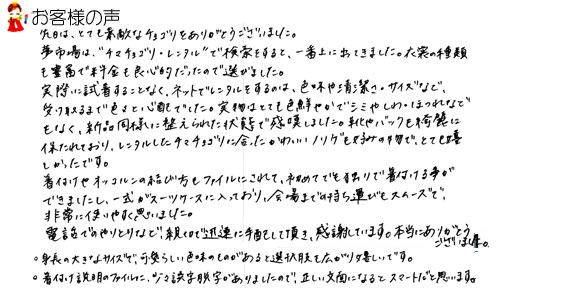 お客様の声
先日は、とても素敵なチョゴリをありがとうございました。
夢市場は、"チマチョゴリ・レンタル"で検索をすると、一番上に出てきました。衣裳の種類
も豊富で料金も良心的だったので選びました。
実際に試着することなく、ネットでレンタルをするのは、色味や清潔さ・サイズなど、
受け取るまで色々と心配でした。実物はとても色鮮やかでシミやしわ・ほつれなど
もなく、新品同様に整えられた状態で感嘆しました。靴やバックも綺麗に
保たれており、レンタルしたチマチョゴリに合ったかわいいノリゲも好みの物で、とても嬉
しかったです。
着付けやオッコルンの結び方もファイルにされて、初めてでも自分で着付ける事が
できましたし、一式がスーツケースに入っており、会場までの持ち運びもスムーズで、
非常に使いやすく思いました。
電話でのやりとりなど、親切で迅速に手配をして頂き、感謝しています。本当にありがとう
ございました。
○身長の大きなサイズで、可愛らしい色味のものがあると選択肢も広がり嬉しいです。
○着付け説明のファイルに、少々誤字脱字がありましたので、正しい文面になるとスマートだと思います。